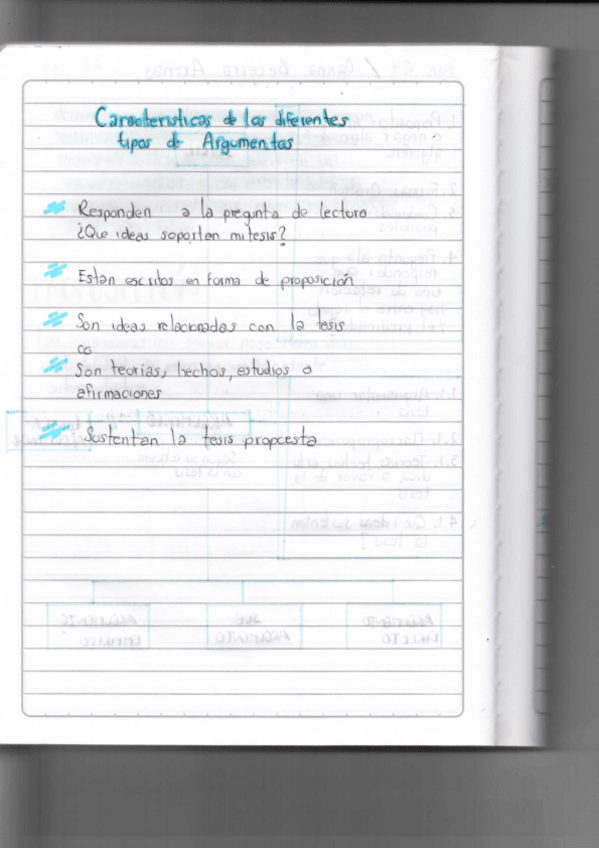 Caracteristicas de los diferentes
tipos de Argumentos
Responden a la pregunta de lectora
¿Que ideas soportan mi tesis?
Estan escritos en forma de proposición
Son ideas relacionadas con la tesis
co
Son teorias, hechos, estudios o
afirmaciones
Sustentan la tesis propcesta